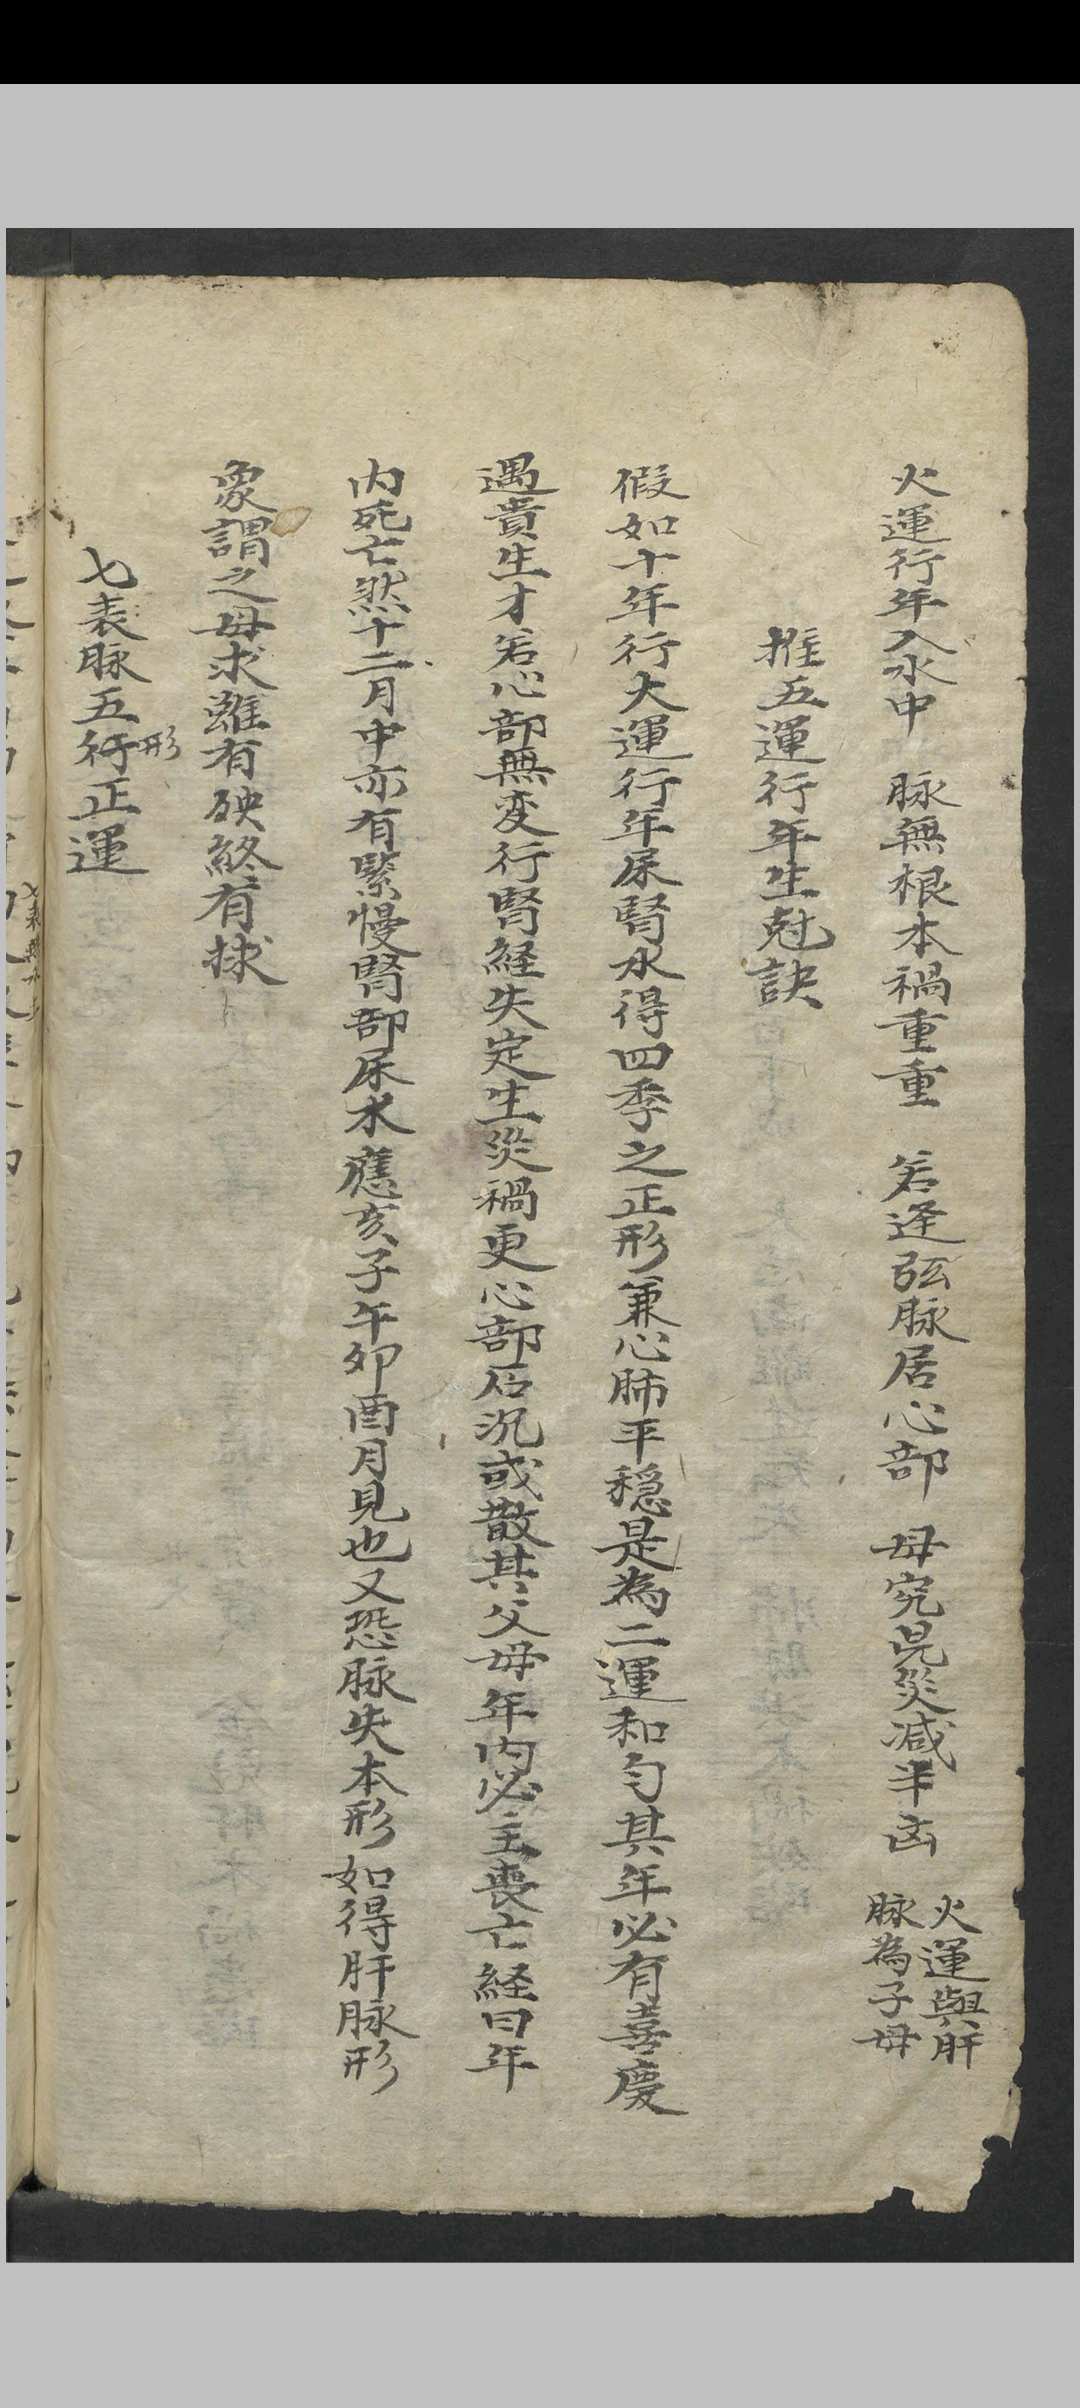 火運行年入水中　脉無根本禍重重　若逢弦脉居心部　母宄見災减半凶　火運與肝
脉為子母
推五運行年生尅訣
假如十年行大運行年尿腎水得四季之正形兼心肺平穏是為二運和勻其年必有喜慶
遇貴生才若心部無变行腎経失定生災禍更心部石沉或散其父母年内必主喪亡経曰年
内死亡然十二月中亦有緊慢腎部尿水應亥子午卯酉月見也又恐脉失本形如得肝脉形
象謂之母求雖有殃終有捄
七表脉五行形正運